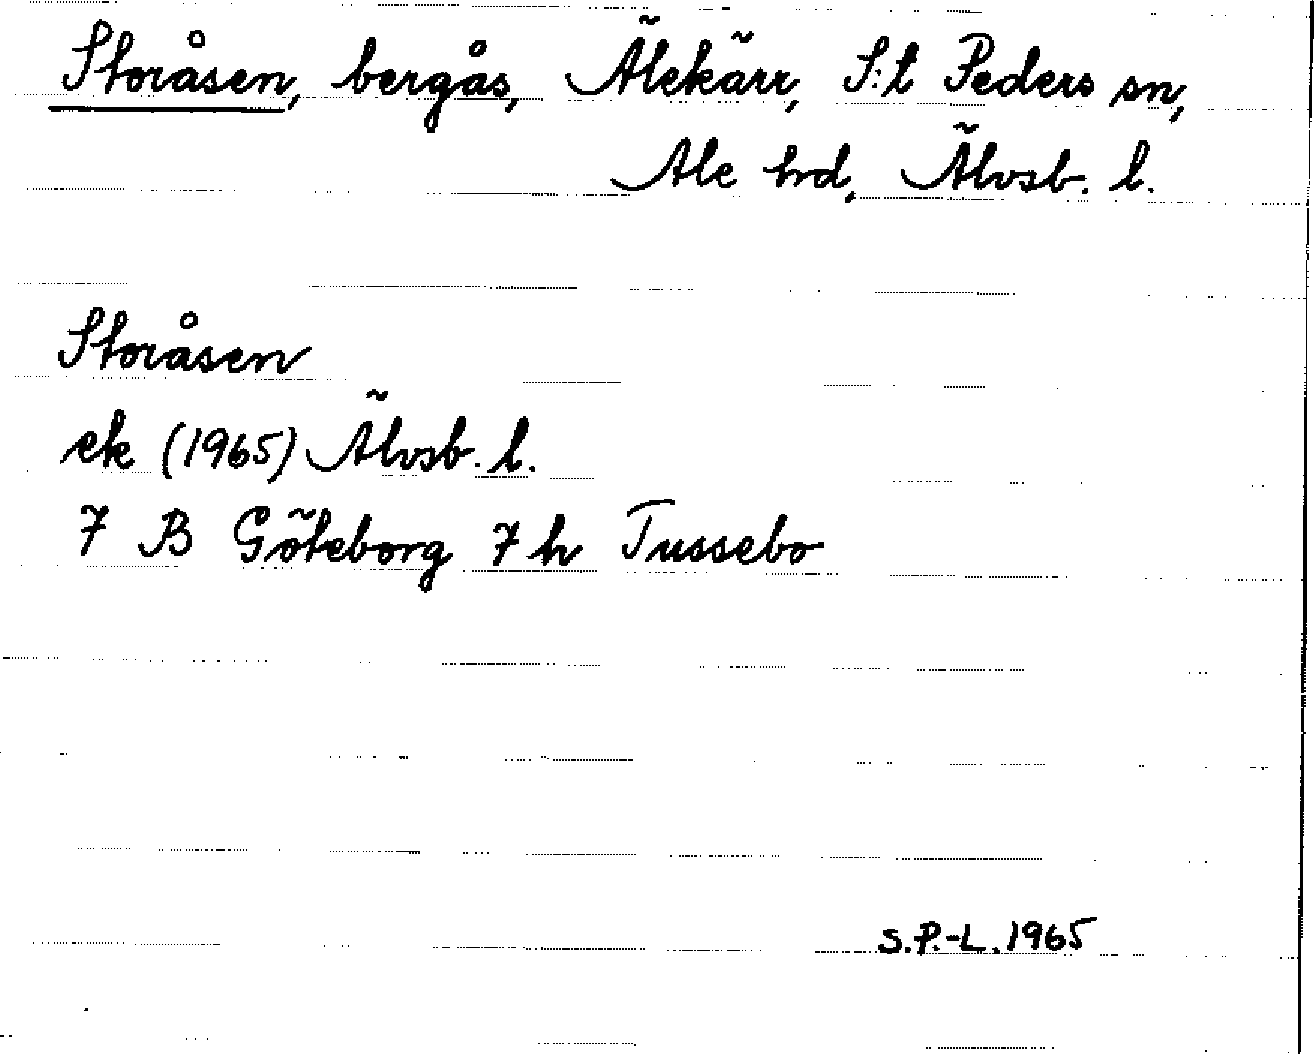 Storåsen, bergås, Älekärr, S:t Peders sn,
Ale hrd, Älvsb. l.
Storåsen
ek (1965) Älvsb. l.
7 B Göteborg 7 h Tussebo
S.P.-L. 1965